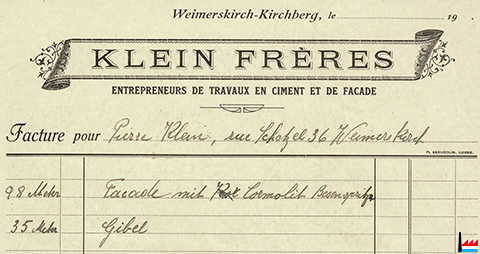 Weimerskirch-Kirchberg, le 19
KLEIN FRÈRES
ENTREPRENEURS DE TRAVAUX EN CIMENT ET DE FACADE
Facture pour Pierre Klein, rue 36 Weimerskirch
P. BEAUDOLIN, LUXBG.
98 Meter Facade mit Cosmolit
35 Meter Gibel